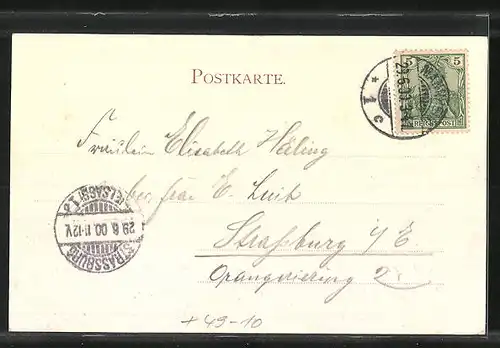 POSTKARTE.
5 5
REICHSPOST
* 1 c
Fräulein Elisabeth Häling
bei Frau E. Link
Straßburg i/E
Orangeriering 2
STRASSBURG (ELSASS) 1
29.6.00.11-12V.
+49-10